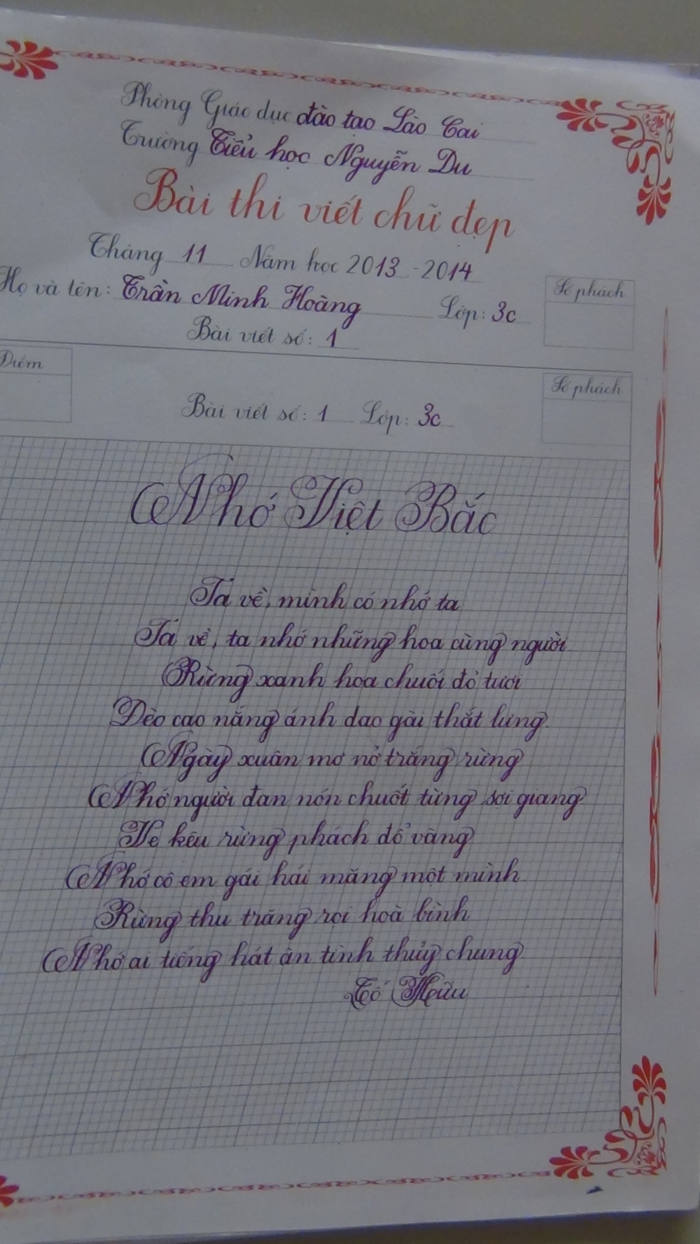 Phòng Giáo dục đào tạo Lào Cai
Trường Tiểu học Nguyễn Du
Bài thi viết chữ đẹp
Tháng 11 Năm học 2013-2014
Họ và tên: Trần Minh Hoàng Lớp: 3c
Số phách
Bài viết số: 1
Điểm
Số phách
Bài viết số: 1 Lớp: 3c
Nhớ Việt Bắc
Ta về, mình có nhớ ta
Ta về, ta nhớ những hoa cùng người
Rừng xanh hoa chuối đỏ tươi
Đèo cao nắng ánh dao gài thắt lưng.
Ngày xuân mơ nở trắng rừng
Nhớ người đan nón chuốt từng sợi giang
Ve kêu rừng phách đổ vàng
Nhớ cô em gái hái măng một mình
Rừng thu trăng rọi hoà bình
Nhớ ai tiếng hát ân tình thủy chung
Tố Hữu